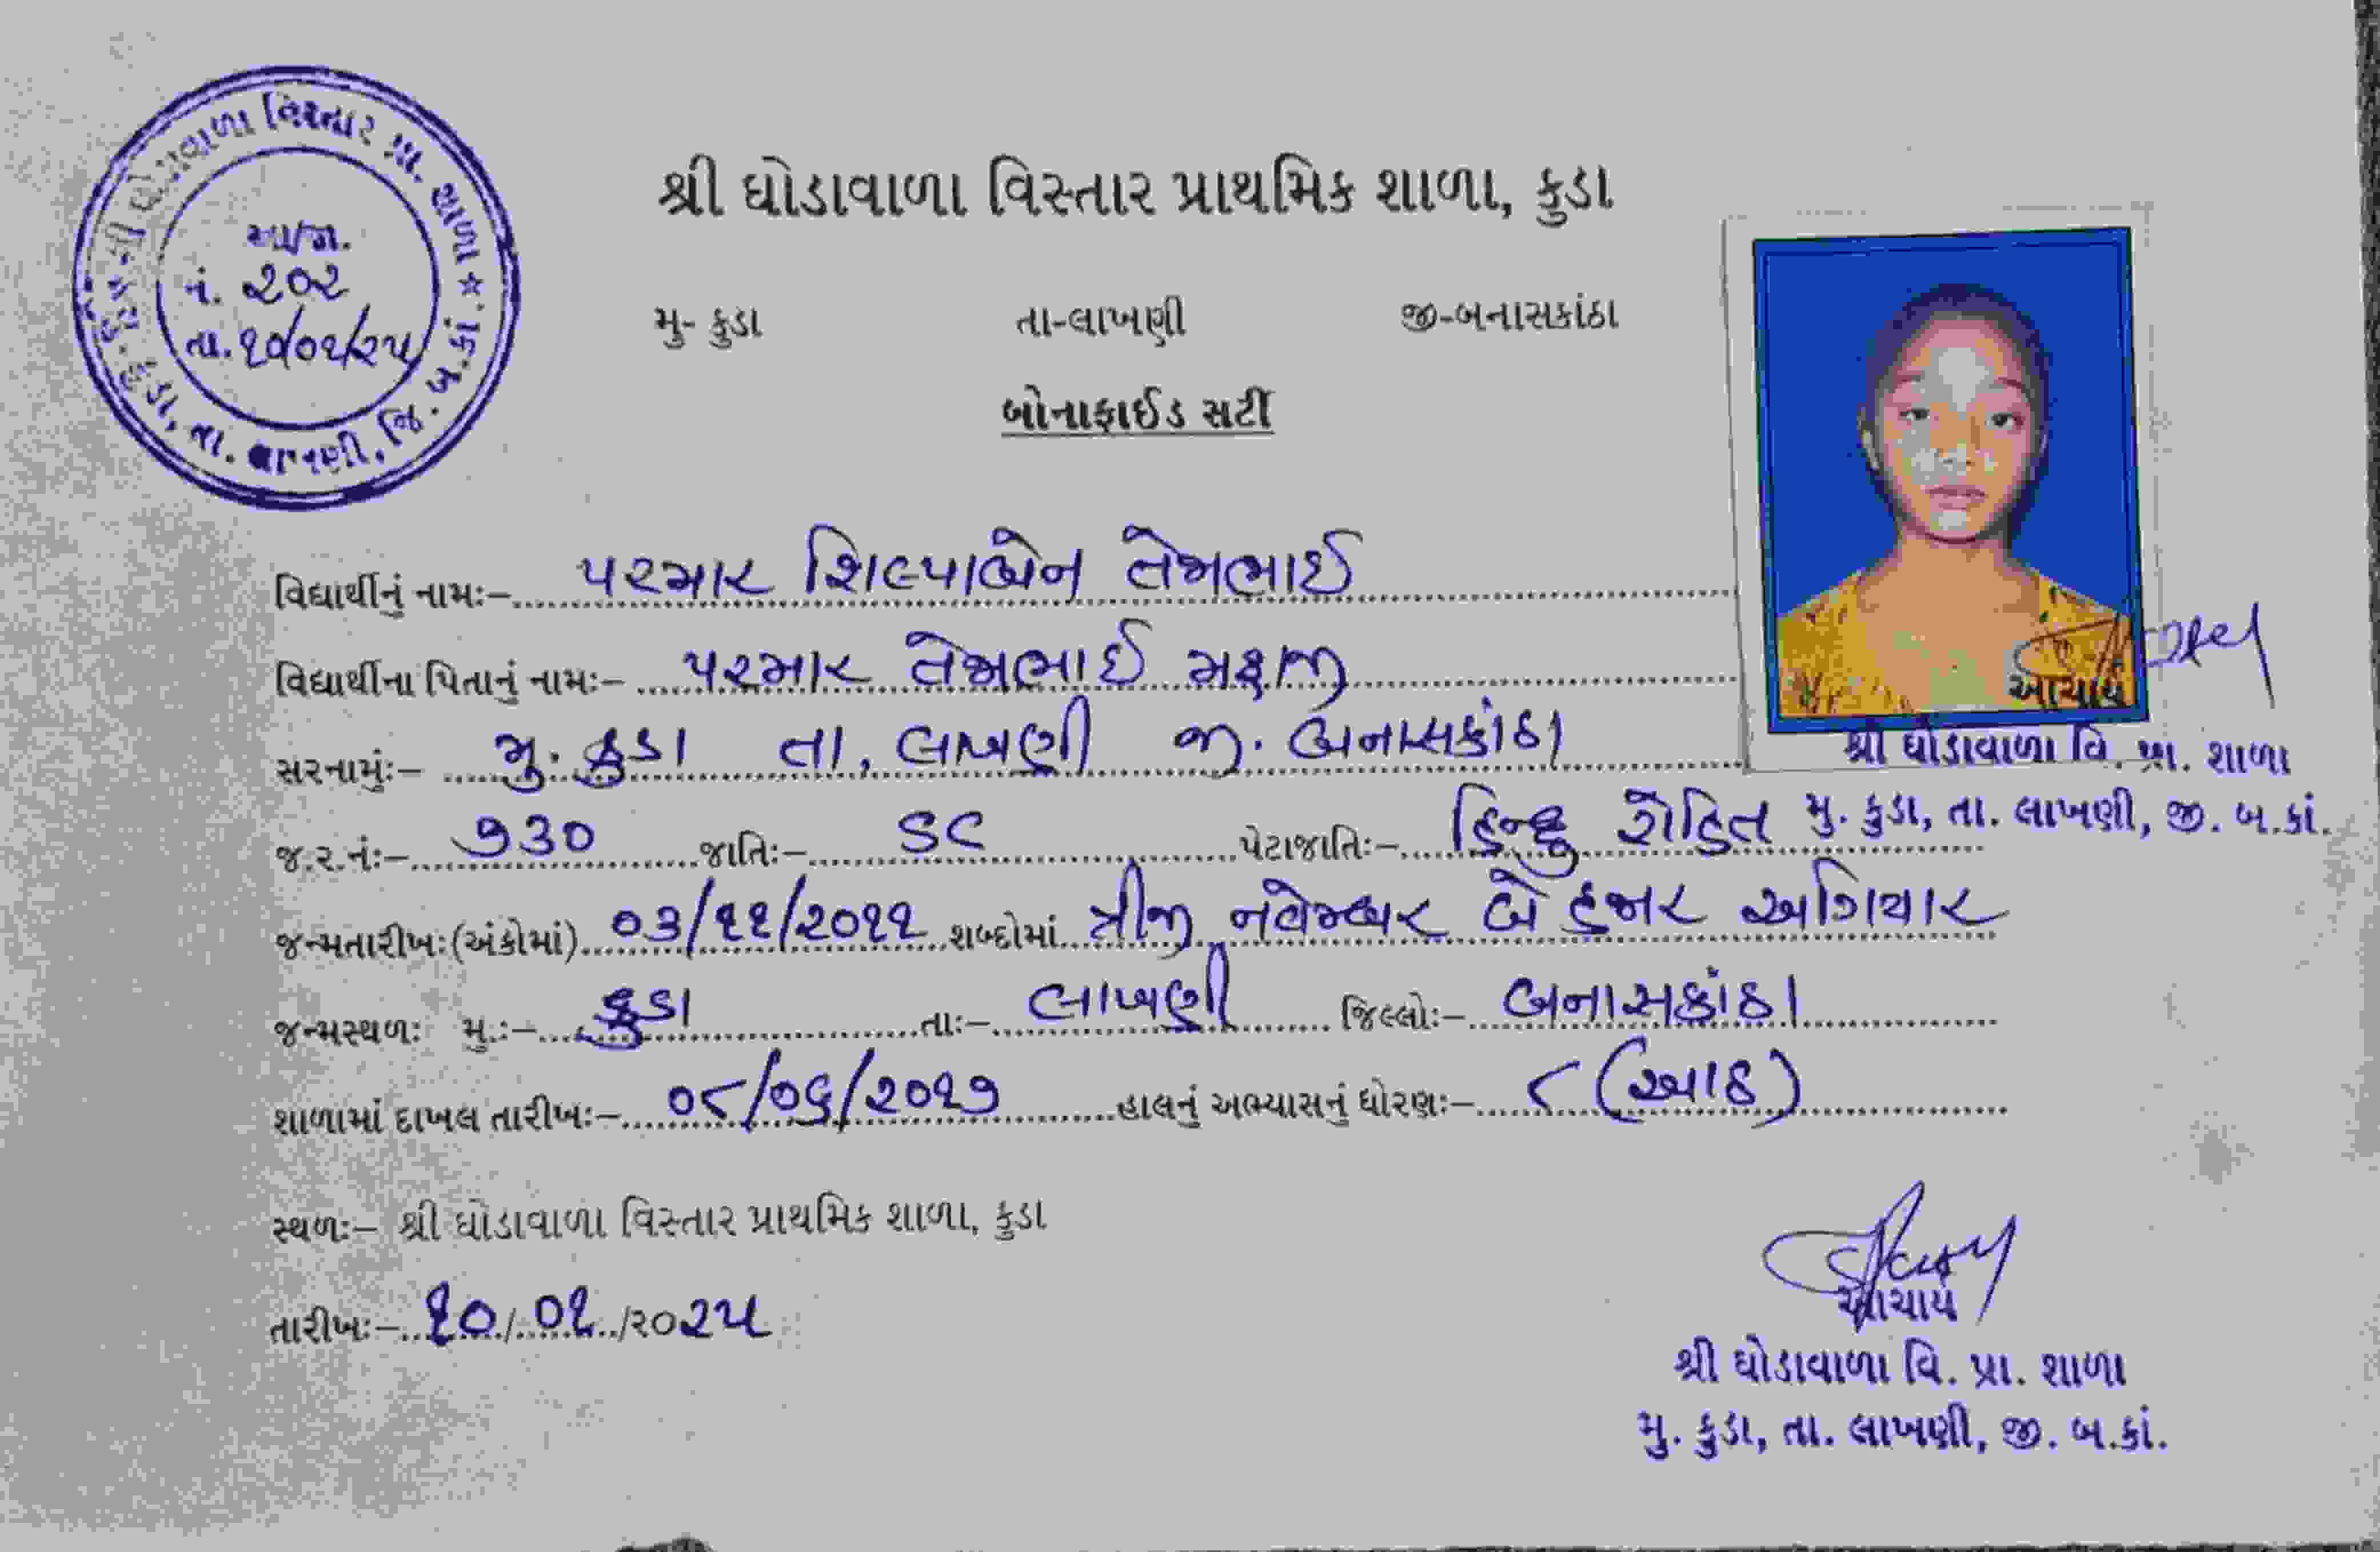 શ્રી ઘોડાવાળા વિસ્તાર પ્રા. શાળા ★
કુડા, તા. લાખણી, જિ. બ.કાં.
આ/જા.
નં. ૨૦૨
તા. ૧૦/૦૧/૨૫
શ્રી ઘોડાવાળા વિસ્તાર પ્રાથમિક શાળા, કુડા
મુ- કુડા તા-લાખણી જી-બનાસકાંઠા
બોનાફાઈડ સર્ટી
વિદ્યાર્થીનું નામઃ– પરમાર શિલ્પાબેન તેજાભાઈ
વિદ્યાર્થીના પિતાનું નામઃ– પરમાર તેજાભાઈ મફાજી
સરનામુંઃ– મુ. કુડા તા. લાખણી જી. બનાસકાંઠા
આચાર્ય
શ્રી ઘોડાવાળા વિ. પ્રા. શાળા
મુ. કુડા, તા. લાખણી, જી. બ.કાં.
જ.ર.નંઃ– ૭૩૦ જાતિઃ– SC પેટાજાતિઃ– હિન્દુ રોહિત
જન્મતારીખઃ(અંકોમાં) ૦૩/૧૧/૨૦૧૧ શબ્દોમાં ત્રીજી નવેમ્બર બે હજાર અગિયાર
જન્મસ્થળઃ મુ.ઃ– કુડા તાઃ– લાખણી જિલ્લોઃ– બનાસકાંઠા
શાળામાં દાખલ તારીખઃ– ૦૮/૦૬/૨૦૧૭ હાલનું અભ્યાસનું ધોરણઃ– ૮ (આઠ)
સ્થળઃ– શ્રી ઘોડાવાળા વિસ્તાર પ્રાથમિક શાળા, કુડા
તારીખઃ– ૧૦/૦૧/૨૦૨૫
આચાર્ય
શ્રી ઘોડાવાળા વિ. પ્રા. શાળા
મુ. કુડા, તા. લાખણી, જી. બ.કાં.